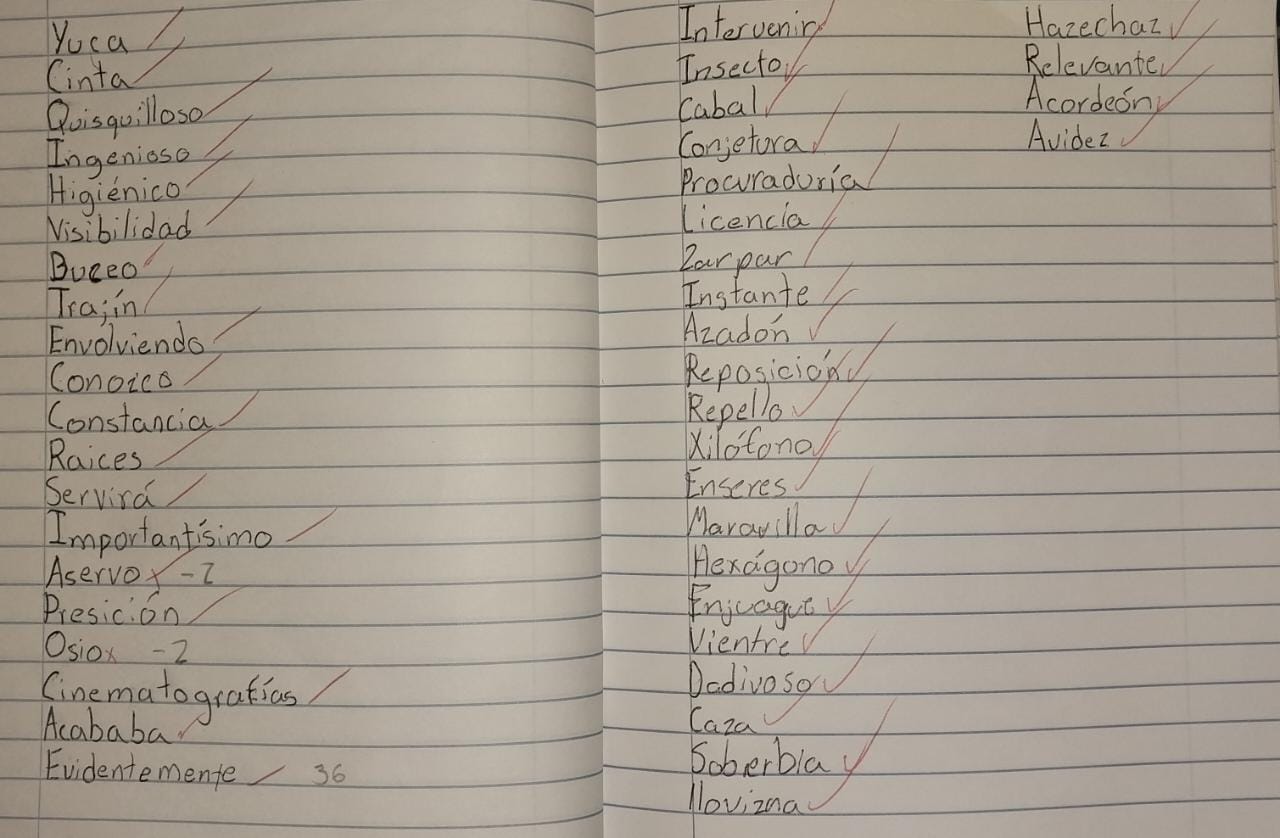 Yuca
Cinta
Quisquilloso
Ingenioso
Higiénico
Visibilidad
Buceo
Trajín
Envolviendo
Conozco
Constancia
Raices
Servirá
Importantísimo
Aservo x -2
Presición
Osio x -2
Cinematografías
Acababa
Evidentemente 36
Intervenir
Insecto
Cabal
Conjetura
Procuraduría
Licencía
Zarpar
Instante
Azadón
Reposición
Repello
Xilófono
Enseres
Maravilla
Hexágono
Enjuague
Vientre
Dadivoso
Caza
Soberbia
llovizna
Hazechaz
Relevante
Acordeón
Avidez